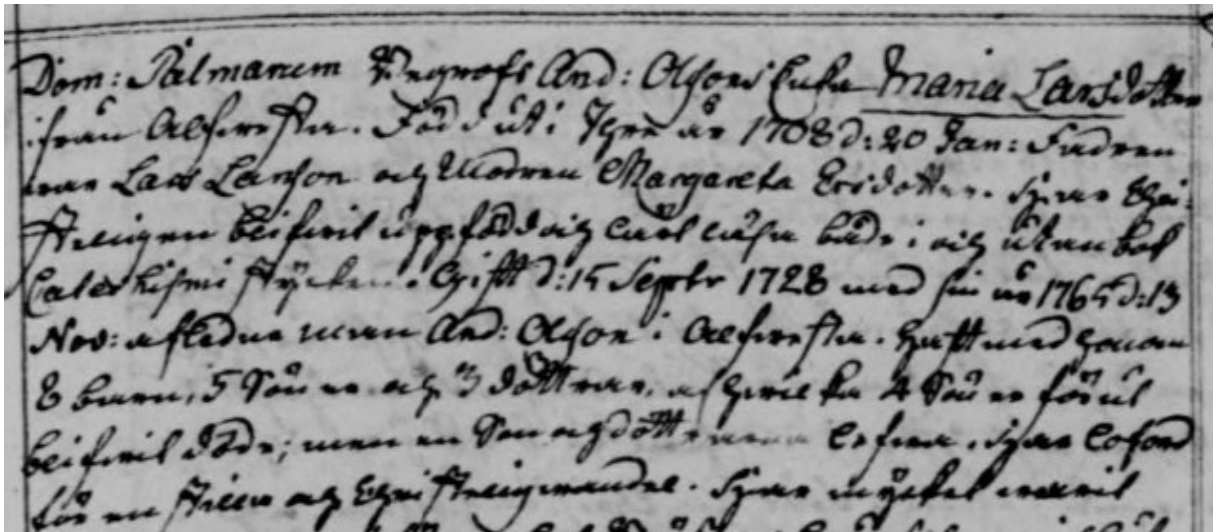 Dom: Palmarum Begrofs And: Olssons Enka Maria Larsdotter
ifrån Alfvesta. Född uti Thre år 1708 d: 20 Jan: Fadren
war Lars Larsson och Modren Margareta Ersdotter. Har Chri-
steligen blifwit uppfödd och lärt läsa både i och utan bok
Catechismi stycken. Gift d: 15 Septr 1728 med sin år 1765 d: 13
Nov: afledne man And: Olsson i Alfvesta. Haft med honom
8 barn, 5 Söner och 3 döttrar, af hwilka 4 Söner förut
blifwit döde; men en Son och döttrarna lefwa. Har loford
för en stilla och Christelig wandel. Har mycket warit